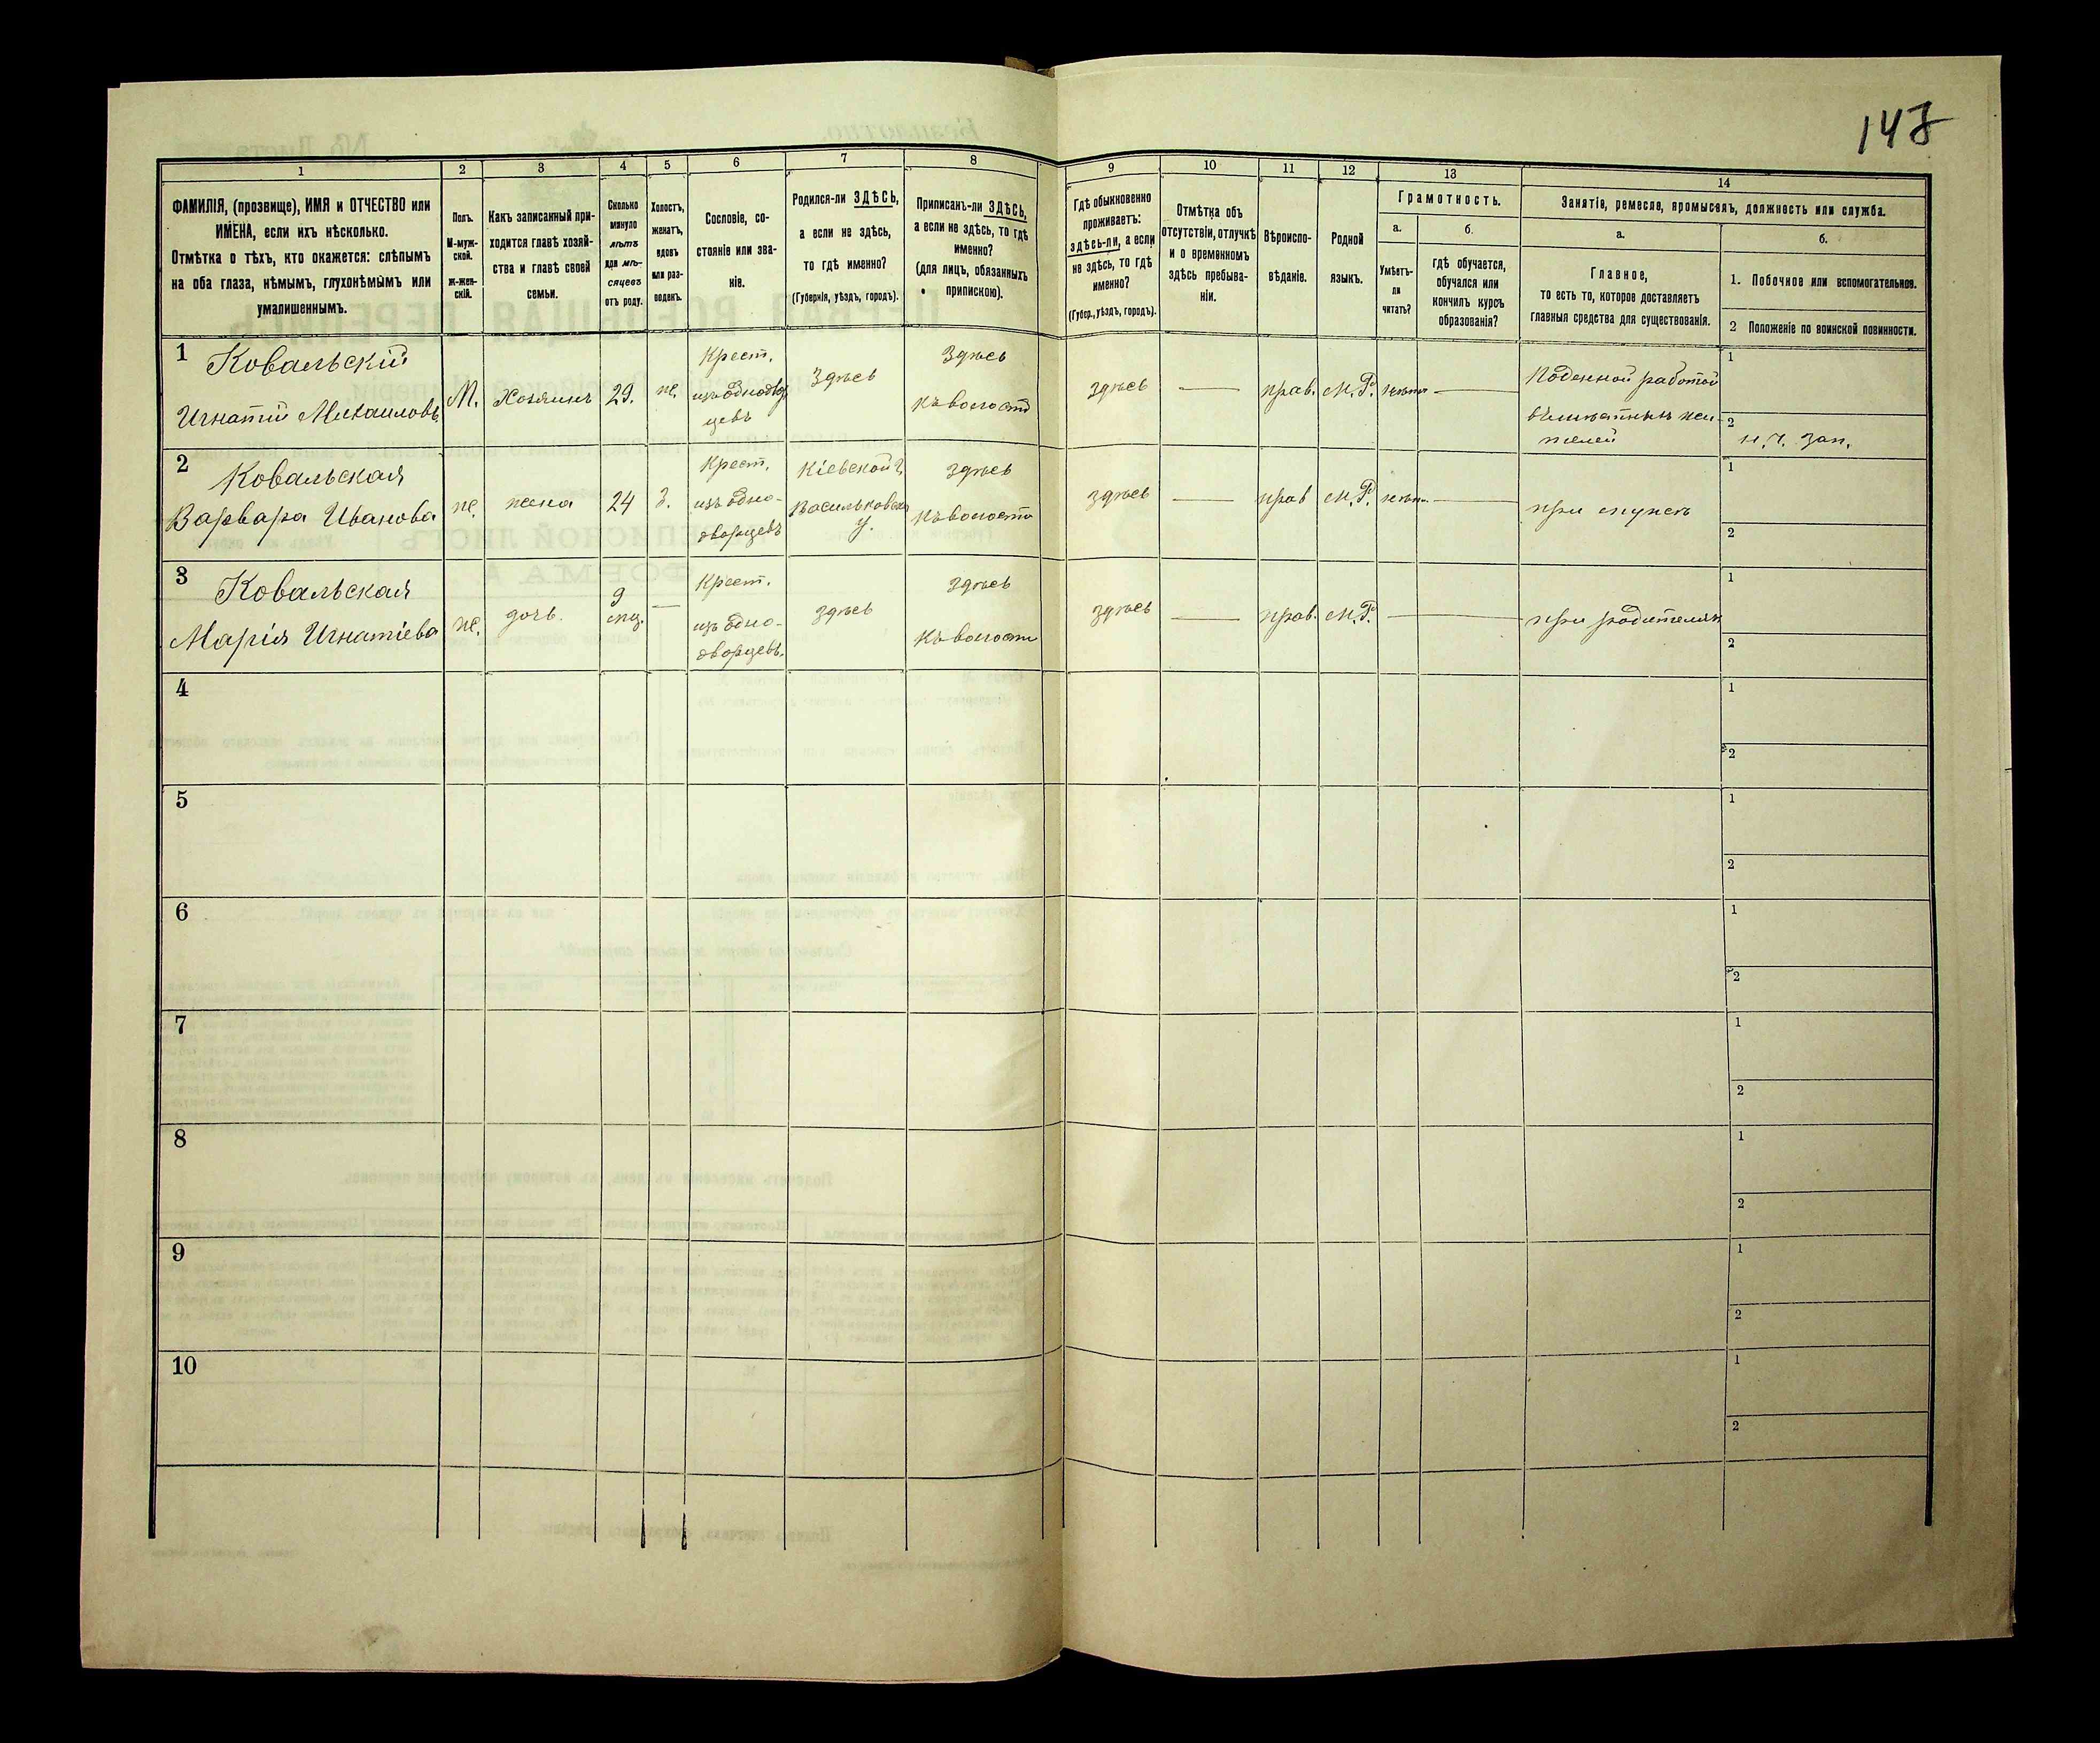 147
1
2
3
4
5
6
7
8
9
10
11
12
13
14
ФАМИЛІЯ, (прозвище), ИМЯ и ОТЧЕСТВО или
ИМЕНА, если ихъ нѣсколько.
Отмѣтка о тѣхъ, кто окажется: слѣпымъ
на оба глаза, нѣмымъ, глухонѣмымъ или
умалишеннымъ.
Полъ.
М-муж-
ской.
Ж-жен-
скій.
Какъ записанный при-
ходится главѣ хозяй-
ства и главѣ своей
семьи.
Сколько
минуло
лѣтъ
или мѣ-
сяцевъ
отъ роду.
Холостъ,
женатъ,
вдовъ
или раз-
веденъ.
Сословіе, со-
стояніе или зва-
ніе.
Родился-ли ЗДѢСЬ,
а если не здѣсь,
то гдѣ именно?
(Губернія, уѣздъ, городъ).
Приписанъ-ли ЗДѢСЬ,
а если не здѣсь, то гдѣ
именно?
(для лицъ, обязанныхъ
припискою).
Гдѣ обыкновенно
проживаетъ:
здѣсь-ли, а если
не здѣсь, то гдѣ
именно?
(Губер., уѣздъ, городъ).
Отмѣтка объ
отсутствіи, отлучкѣ
и о временномъ
здѣсь пребыва-
ніи.
Вѣроиспо-
вѣданіе.
Родной
языкъ.
Грамотность.
а.
Умѣетъ-
ли
читать?
б.
гдѣ обучается,
обучался или
кончилъ курсъ
образованія?
Занятіе, ремесло, промыселъ, должность или служба.
а.
Главное,
то есть то, которое доставляетъ
главныя средства для существованія.
б.
1. Побочное или вспомогательное.
2 Положеніе по воинской повинности.
1
Ковальскій
Игнатій Михаиловъ
М.
Хозяинъ
29.
ж.
Крест.
изъ однодвор
цевъ
Здѣсь
Здѣсь
къ волости
здѣсь
прав.
М.Р.
нѣтъ
Поденной работой
1
2
н. ч. зап.
2
Ковальская
Варвара Иванова
ж.
жена
24
з.
Крест.
изъ одно-
дворцевъ
Кіевской г.
Васильковск
у.
здѣсь
къ волости
здѣсь
прав
М.Р.
нѣтъ
при мужѣ
1
2
3
Ковальская
Марія Игнатіева
ж.
дочь.
9
мц.
Крест.
изъ одно-
дворцевъ.
здѣсь
здѣсь
къ волости
здѣсь
прав.
М.Р.
при родителях
1
2
4
1
2
5
1
2
6
1
2
7
1
2
8
1
2
9
1
2
10
1
2